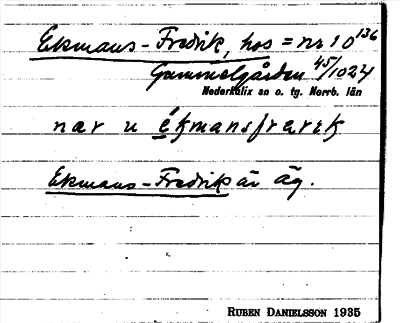 Ekmans-Fredrik, hos = nr 10¹³⁶
Gammelgården 45/1024
Nederkalix sn o. tg. Norrb. län
nær u ékmansfrærɛk
Ekmans-Fredrik är äg.
RUBEN DANIELSSON 1935